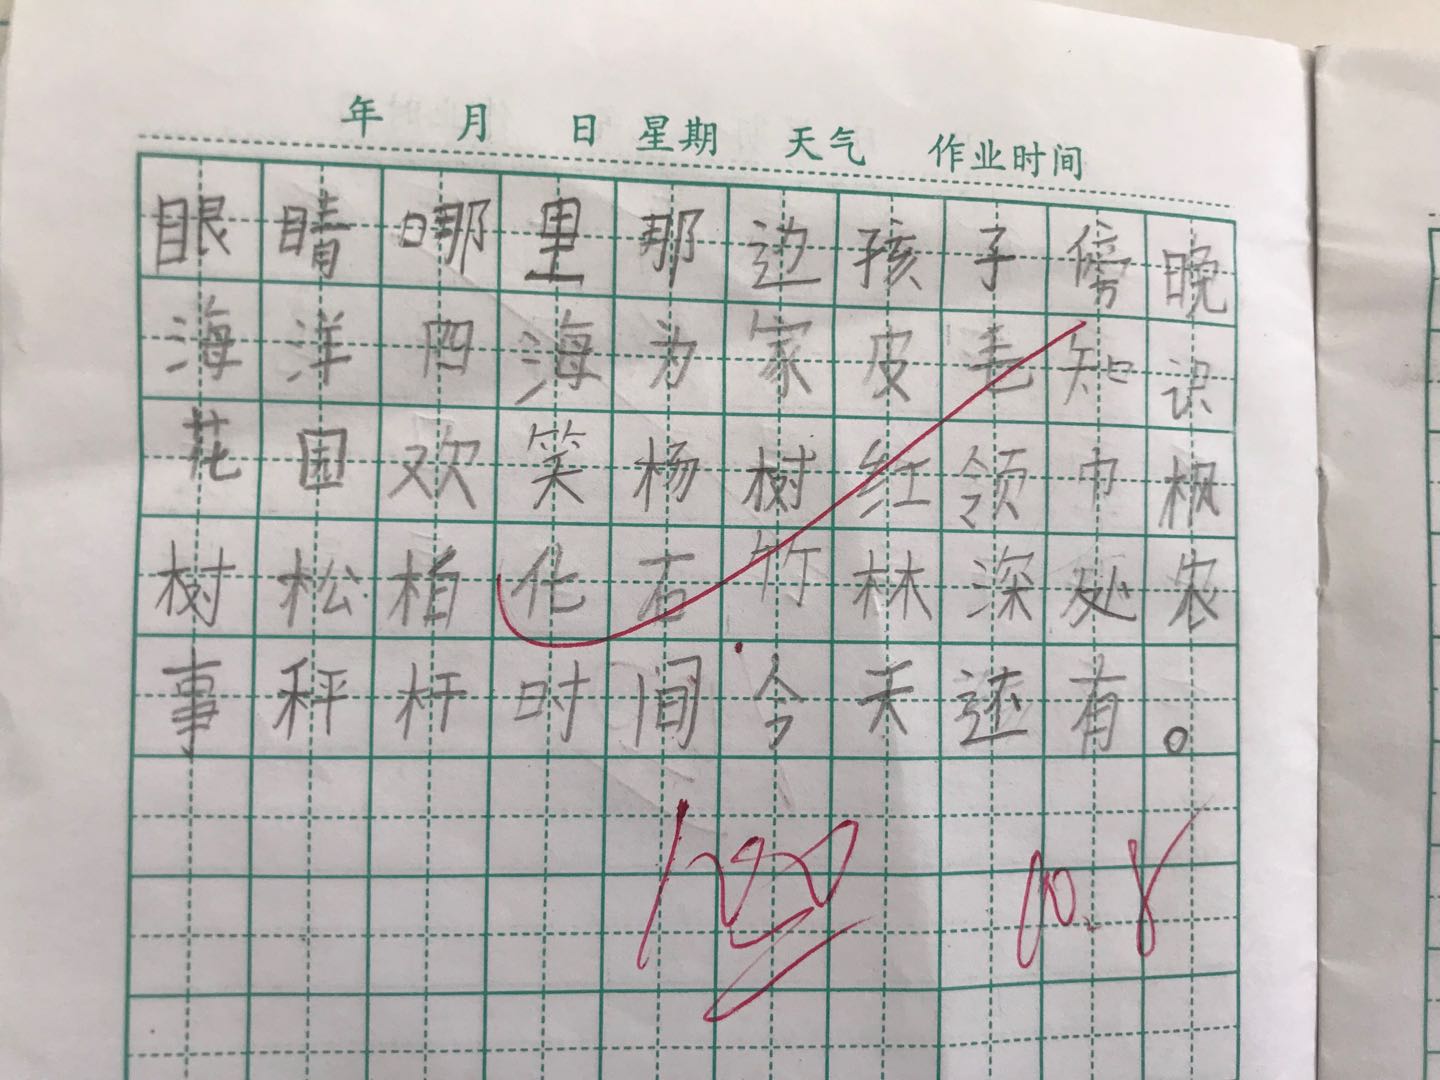 年 月 日 星期 天气 作业时间
眼睛哪里那边孩子傍晚
海洋四海为家皮毛知识
花园欢笑杨树红领巾枫
树松柏化石竹林深处农
事秤杆时间今天还有。
100 10.8